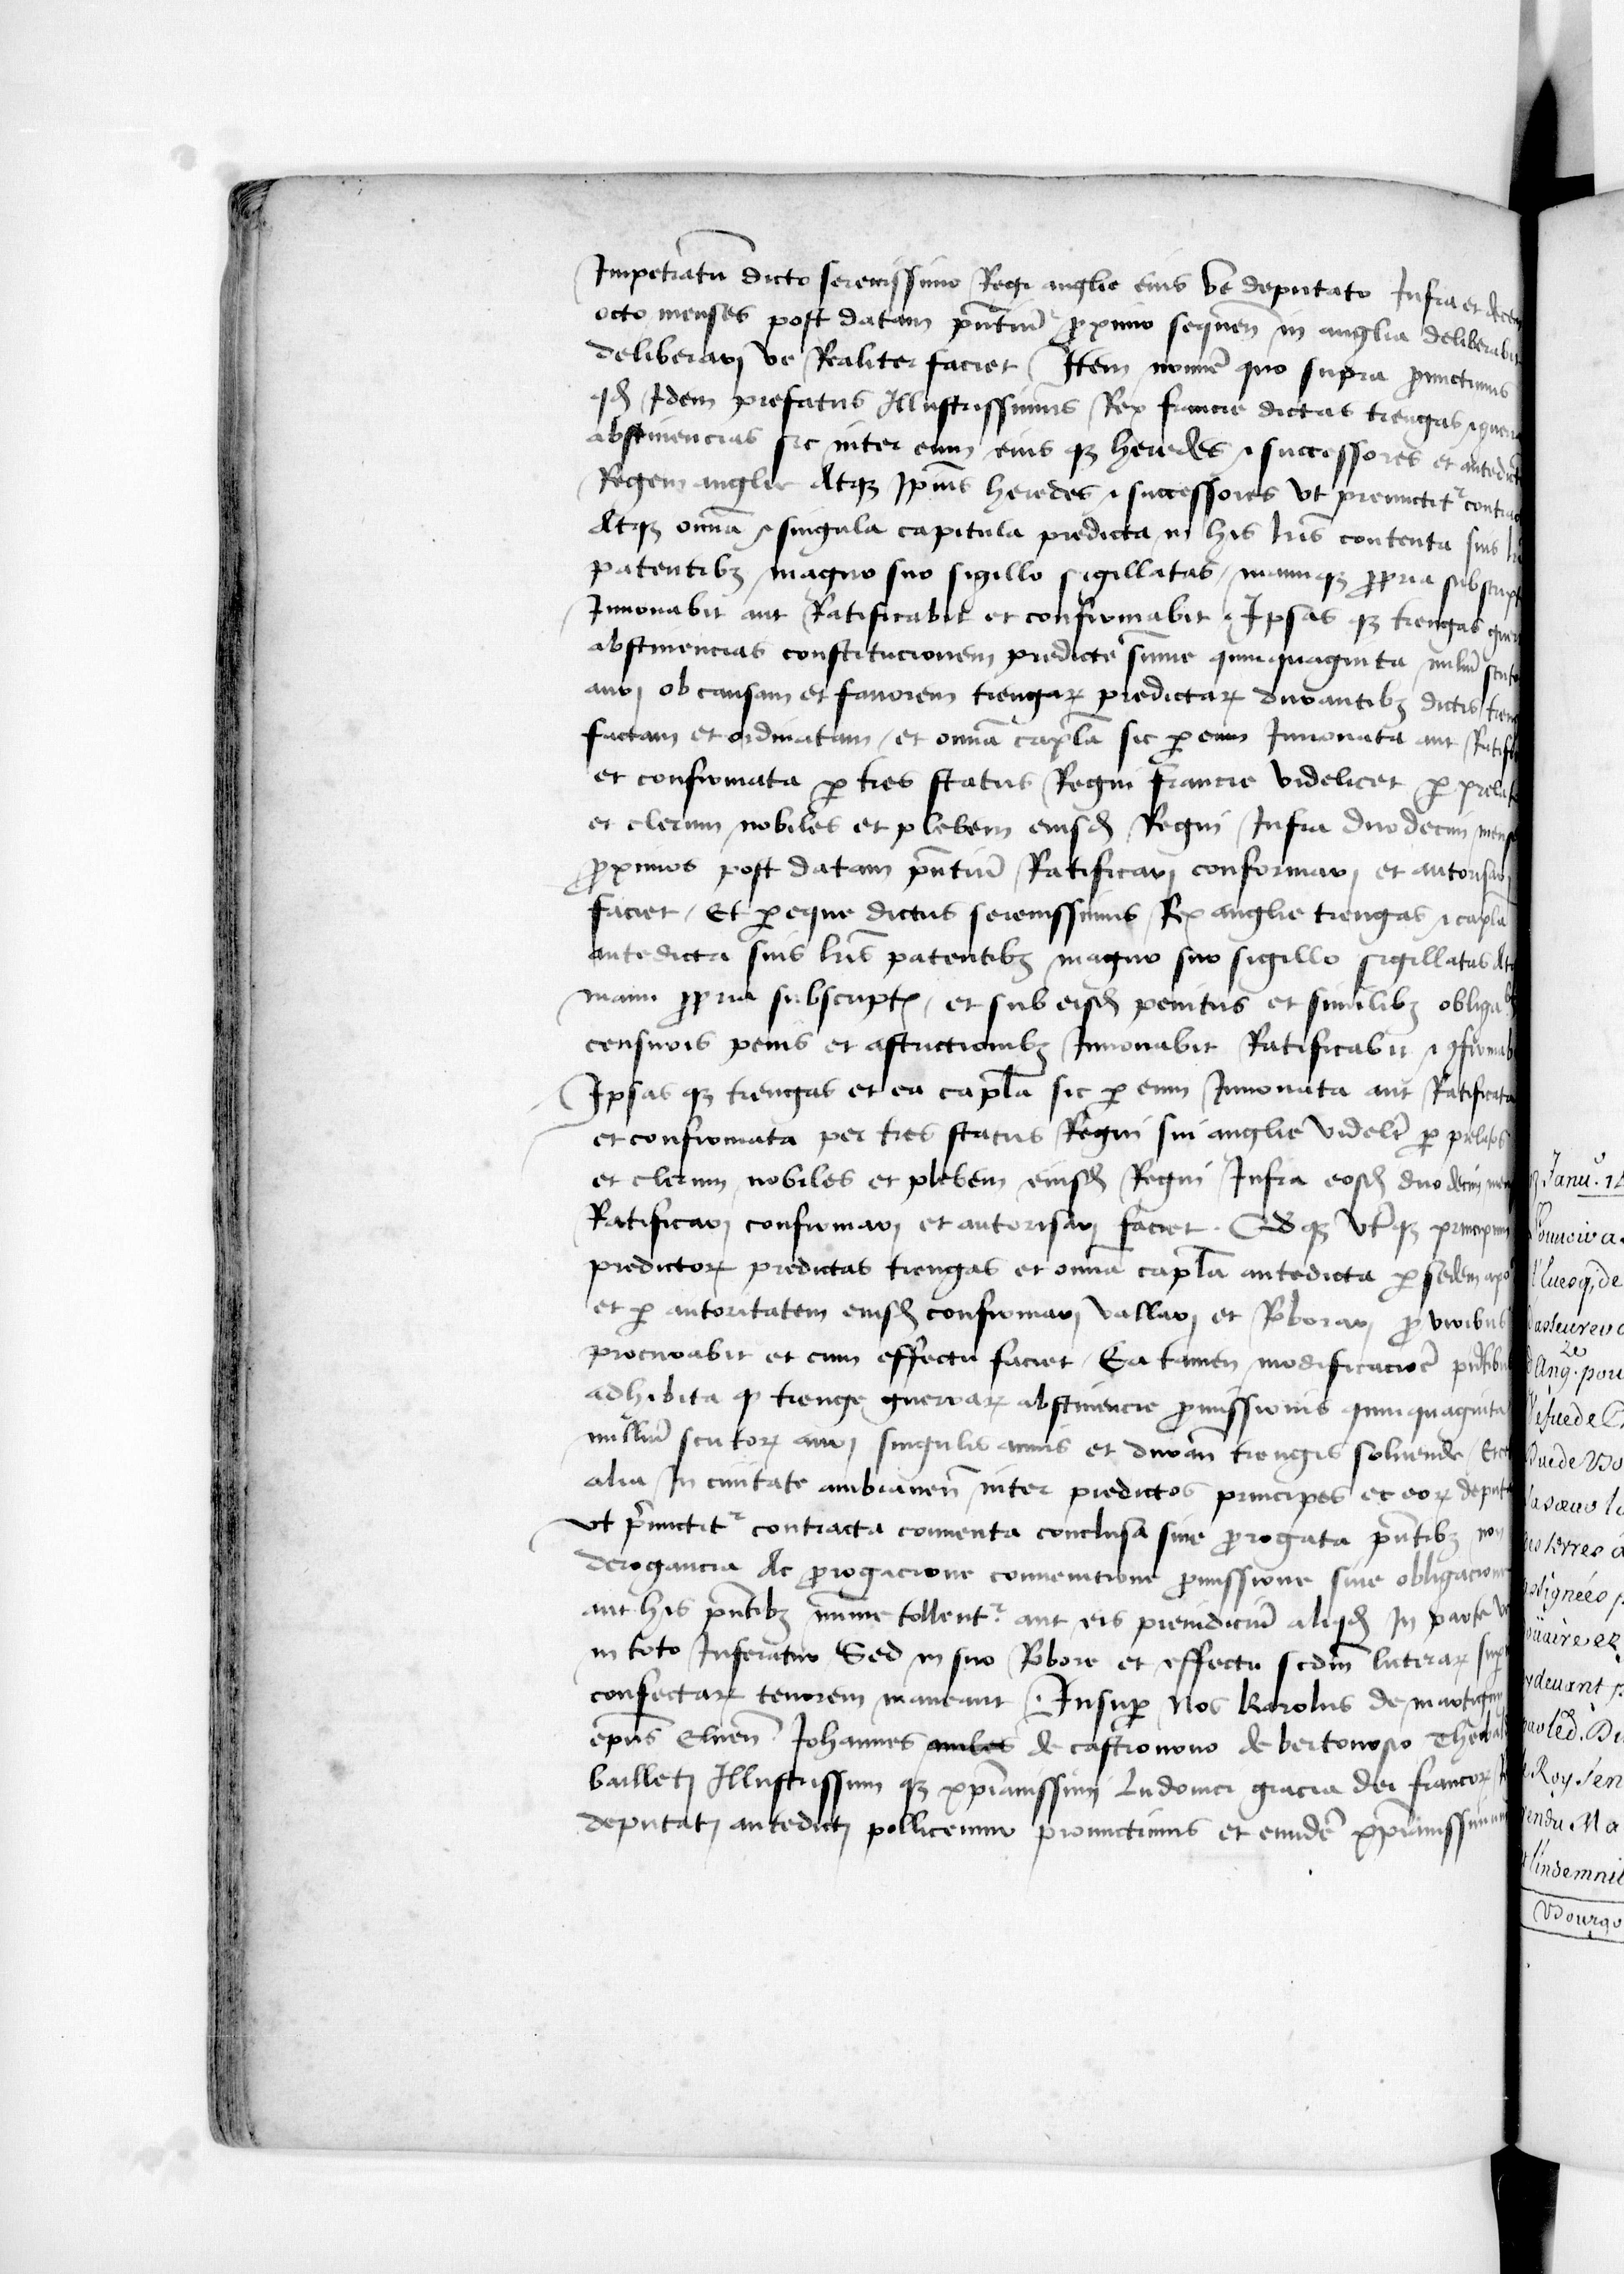 Impetratu dicto serenissimo Regi anglie eius ve deputato Infra et decem
octo menses post datam pntiu proximo sequen in anglia deliberabit
deliberari ve Realiter faciet Item nomie quo supra promictimus
qd Idem prefatus Illustrissimus Rex francie dictas treugas et guerr
abstinencias sic inter eum eius qz heredes et successores et antedict
Regem anglie Atqz Ipius heredes et successores vt premictitr contrac
Atqz omnia et singula capitula predicta in his lris contenta suis lris
patentibz magno suo sigillo sigillatas manuqz propria subscript
Innouabit aut Ratificabit et confirmabit Ipsas qz treugas guer
abstinencias constitucionem predicte summe quinquaginta miliu scuto
auri ob causam et fauorem treugar predictar durantibz dictis treug
factam et ordinatam et omnia capla sic p eum Innouata aut Ratifi
et confirmata p tres status Regni francie videlicet p prelat
et clerum nobiles et plebem eiusd Regni Infra duodecim mense
proximos post datam pntiu Ratificari conformari et autorisari
faciet Et pereque dictus serenissimus Rex anglie treugas et capla
antedicta suis lris patentibz magno suo sigillo sigillatas At
manu propria subscript et sub eisd penitus et similibz obliga
censuris penis et astrictionibz Innouabit Ratificabit et confirmab
Ipsas qz treugas et ea capla sic p eum Innouata aut Ratificata
et confirmata per tres status Regni sui anglie videlt p prelatos
et clerum nobiles et plebem eiusd Regni Infra eosd duodecim men
Ratificari confirmari et autorisari faciet qz vterqz principum
predictor predictas treugas et omnia capla antedicta p sedem apo
et p autoritatem eiusd confirmari vallari et Roborari pro viribus
procurabit et cum effectu faciet Ea tamen modificacioe pntibus
adhibita qp treuge guerrar abstinencie promissionis quinquaginta
milliu scutor auri singulis annis et duran treugis soluende Et
alia In ciuitate ambianen inter predictos principes et eor deput
vt premictitr contracta conuenta conclusa siue prorogata pntibz non
derogancia Ac prorogacione conuentione promissione siue obligacione
aut his pntibz minime tollentr aut eis preiudiciu aliqd In parte ve
in toto Inferatur Sed in suo Robore et effectu scdm litterar sup
confectar tenorem maneant Insup Nos karolus de martign
epus Elnen Johannes miles de castronouo de bertonoso Theobal
bailleti Illustrissimi qz xpianissimi Ludouici gracia dei francor
deputati antedicti pollicemur promictimus et eundem xpianissimum
Janu. 14
Pouuoir a
l'Euesq, de
dasseurer
dAng. pour
Duc de Bo
terres
assignées
douaire et
deuant
led. Du
Roy s'en
rendu Ma
l'indemnit
Bourgo